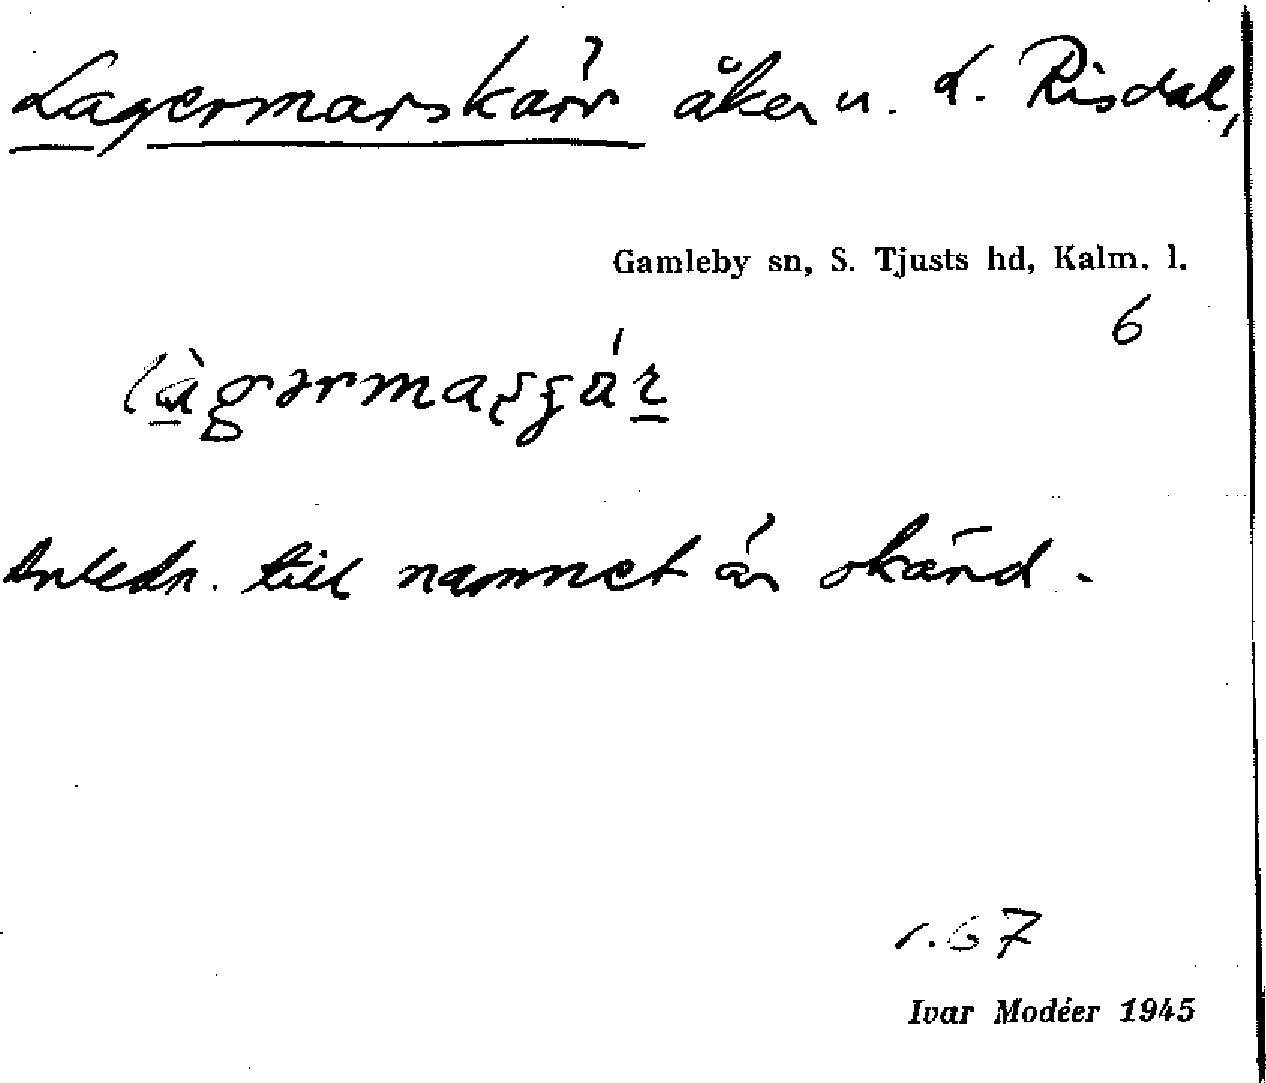 Lagermarskärr åker u. L. Risdal,
Gamleby sn, S. Tjusts hd, Kalm. l.
6
Anledn. till namnet är okänd.
s. 67
Ivar Modéer 1945